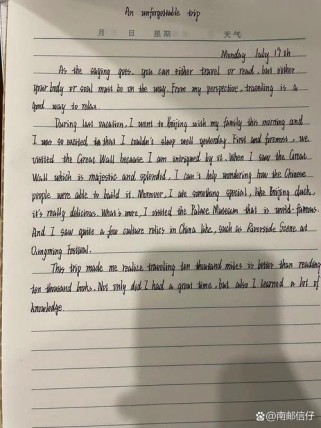 An unforgettable trip
月 日 星期 天气
Monday July 17th
As the saying goes, you can either travel or read, but either
your body or soul must be on the way. From my perspective, traveling is a
good way to relax.
During last vacation, I went to Beijing with my family this morning and
I was so excited to that I couldn't sleep well yesterday. First and foremost, we
visited the Great Wall because I am intrigued by it. When I saw the Great
Wall which is majestic and splendid, I can't help wondering how the Chinese
people were able to build it. Moreover, I ate something special, like Beijing duck,
it's really delicious. What's more, I visited the Palace Museum that is world-famous.
And I saw quite a few culture relics in China like, such as Riverside Scene at
Qingming Festival.
This trip made me realize traveling ten thousand miles is better than reading
ten thousand books. Not only did I had a great time, but also I learned a lot of
knowledge.
@南邮信仔